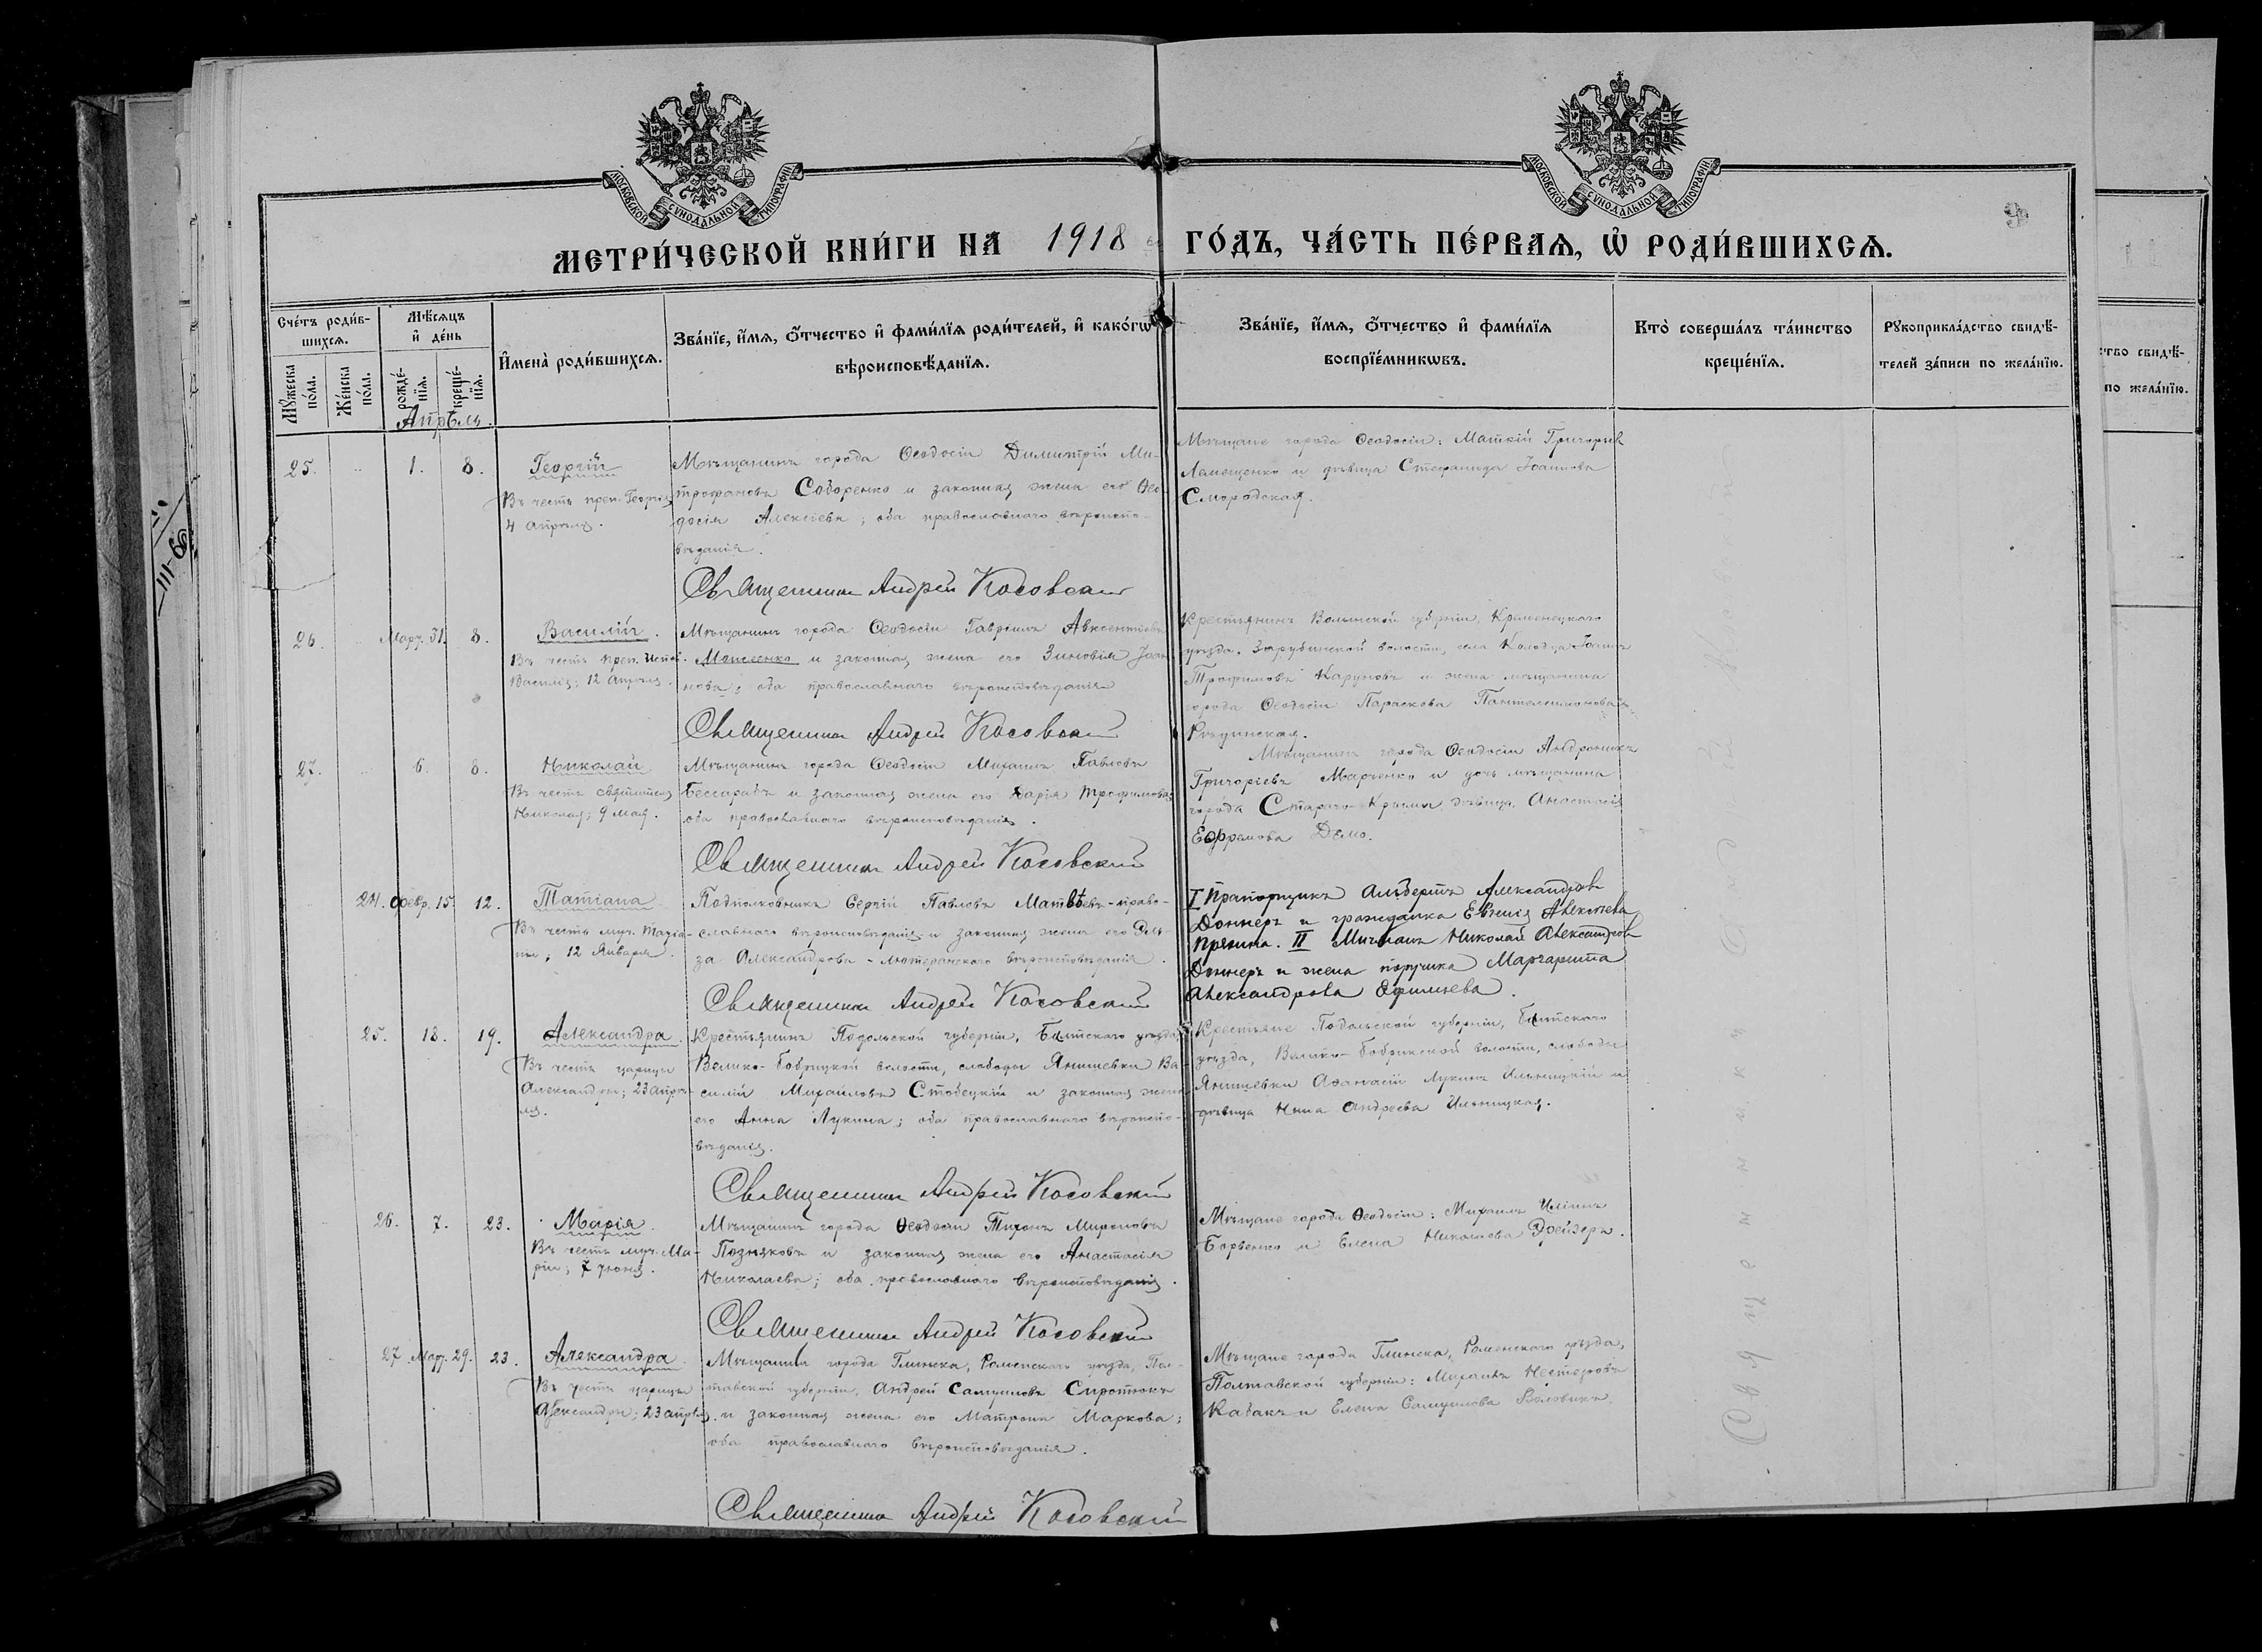 МОСКОВСКОЙ СѴНОДАЛЬНОЙ ТИПОГРАФІИ
МОСКОВСКОЙ СѴНОДАЛЬНОЙ ТИПОГРАФІИ
МЕТРИ́ЧЕСКОЙ КНИ́ГИ НА 1918 ГО́ДЪ, ЧА́СТЬ ПЕ́РВАЯ, Ѡ РОДИ́ВШИХСЯ.
Сче́тъ роди́в-
шихся.
Мꙋ́жеска по́ла.
Же́нска по́ла.
Мѣ́сяцъ и де́нь
рожде́-нїя.
креще́-нїя.
И҆мена̀ роди́вшихся.
Зва́нїе, и҆́мя, ѻ҆́тчество и҆ фами́лїя роди́телей, и҆ како́гѡ
вѣроисповѣ́данїя.
Зва́нїе, и҆́мя, ѻ҆́тчество и҆ фами́лїя
воспрїе́мникѡвъ.
Кто̀ соверша́лъ та́инство
креще́нїя.
Рꙋкоприкла́дство свидѣ́-
телей за́писи по жела́нїю.
ство свидѣ́-
по жела́нїю.
Апрѣль.
25. 1. 8. Георгій
Въ честь преп. Георгія
4 апрѣля.
Мѣщанинъ города Ѳеодосіи Димитрій Ми-
трофановъ Сидоренко и законная жена его Ѳео-
досія Алексіева; оба православнаго вѣроиспо-
вѣданія.
Мѣщане города Ѳеодосіи: Григорьев
и дѣвица Стефанида Іоаннова
Смородская.
Священникъ Андрей Косовскій
26. Март. 31. 8. Василій.
Въ честь преп. Испов.
Василія; 12 Апрѣля.
Мѣщанинъ города Ѳеодосіи Гавріилъ Авксентіевъ
Моисеенко и законная жена его Зиновія Іоан-
нова; оба православнаго вѣроисповѣданія
Крестьянинъ Волынской губерніи, Кременецкаго
уѣзда, волости, села Колодца Іоаннъ
Трофимовъ Каруновъ и жена мѣщанина
города Ѳеодосіи Параскева Пантелеимонова
Рѣдинская.
Священникъ Андрей Косовскій
27. 6. 8. Николай
Въ честь святителя
Николая; 9 мая.
Мѣщанинъ города Ѳеодосіи Михаилъ Павловъ
Бессарабъ и законная жена его Дарія Трофимова;
оба православнаго вѣроисповѣданія.
Мѣщанинъ города Ѳеодосіи Андроникъ
Григоріевъ Марченко и дочь мѣщанина
города Стараго-Крыма дѣвица Анастасія
Ефремова Демо.
Священникъ Андрей Косовскій
24. Февр. 15. 12. Татіана
Въ честь муч. Татіа-
ны; 12 Января.
Подполковникъ Сергій Павловъ Матвѣевъ - право-
славнаго вѣроисповѣданія и законная жена его Эль-
за Александрова - лютеранскаго вѣроисповѣданія.
I Прапорщикъ Альбертъ Александровъ
Доннеръ и гражданка Евгенія Алексѣева
II Мичманъ Николай Александровъ
Доннеръ и жена поручика Маргарита
Александрова Ефимьева.
Священникъ Андрей Косовскій
25. 18. 19. Александра.
Въ честь царицы
Александры; 23 апрѣ-
ля.
Крестьянинъ Подольской губерніи, Балтскаго уѣзда,
Велико-Бобрицкой волости, слободы Янишевки Ва-
силій Михаиловъ Стобецкій и законная жена
его Анна Лукина; оба православнаго вѣроиспо-
вѣданія.
Крестьяне Подольской губерніи, Балтскаго
уѣзда, Велико-Бобрикской волости, слободы
Янишевки Аѳанасій Лукинъ Ильницкій и
дѣвица Нина Андреева Ильницкая.
Священникъ Андрей Косовскій
26. 7. 23. Марія.
Въ честь муч. Ма-
ріи; 7 Іюня.
Мѣщанинъ города Ѳеодосіи Тихонъ Мироновъ
Позняковъ и законная жена его Анастасія
Николаева; оба православнаго вѣроисповѣданія.
Мѣщане города Ѳеодосіи: Михаилъ Иліинъ
Борвенко и Елена Николаева Дрейзеръ.
Священникъ Андрей Косовскій
27. Март. 29. 23. Александра
Въ честь царицы
Александры; 23 апрѣля.
Мѣщанинъ города Глинска, Роменскаго уѣзда, Пол-
тавской губерніи, Андрей Самуиловъ Сиротюкъ
и законная жена его Матрона Маркова;
оба православнаго вѣроисповѣданія.
Мѣщане города Глинска, Роменскаго уѣзда,
Полтавской губерніи: Михаилъ Нестеровъ
Кабакъ и Елена Самуилова Воловикъ.
Священникъ Андрей Косовскій